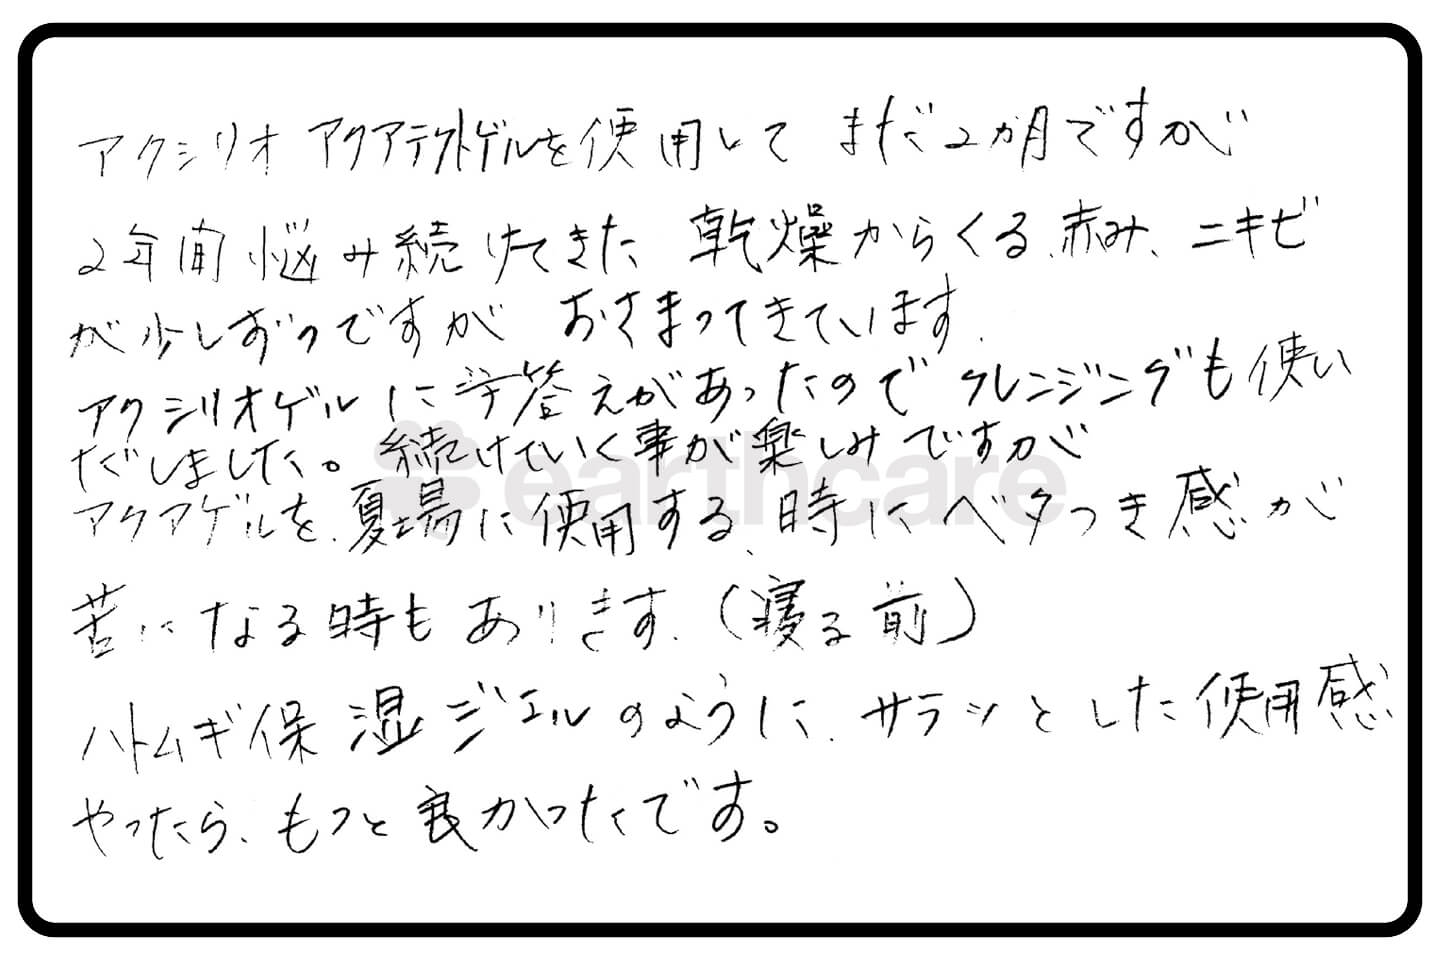 アクシリオ アクアテクトゲルを使用して まだ2か月ですが
2年間悩み続けてきた 乾燥からくる、赤み、ニキビ
が少しずつですが おさまってきています。
アクシリオゲルに手答えがあったので クレンジングも使い
だしました。続けていく事が楽しみですが
アクアゲルを、夏場に使用する、時にベタつき感が
苦になる時もあります。(寝る前)
ハトムギ保湿ジェルのように、サラッとした使用感
やったら、もっと良かったです。
earthcare